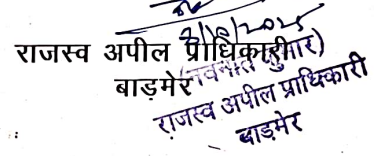 8/10/2025
राजस्व अपील प्राधिकारी
बाड़मेर
(नवनीत कुमार)
राजस्व अपील प्राधिकारी
बाड़मेर